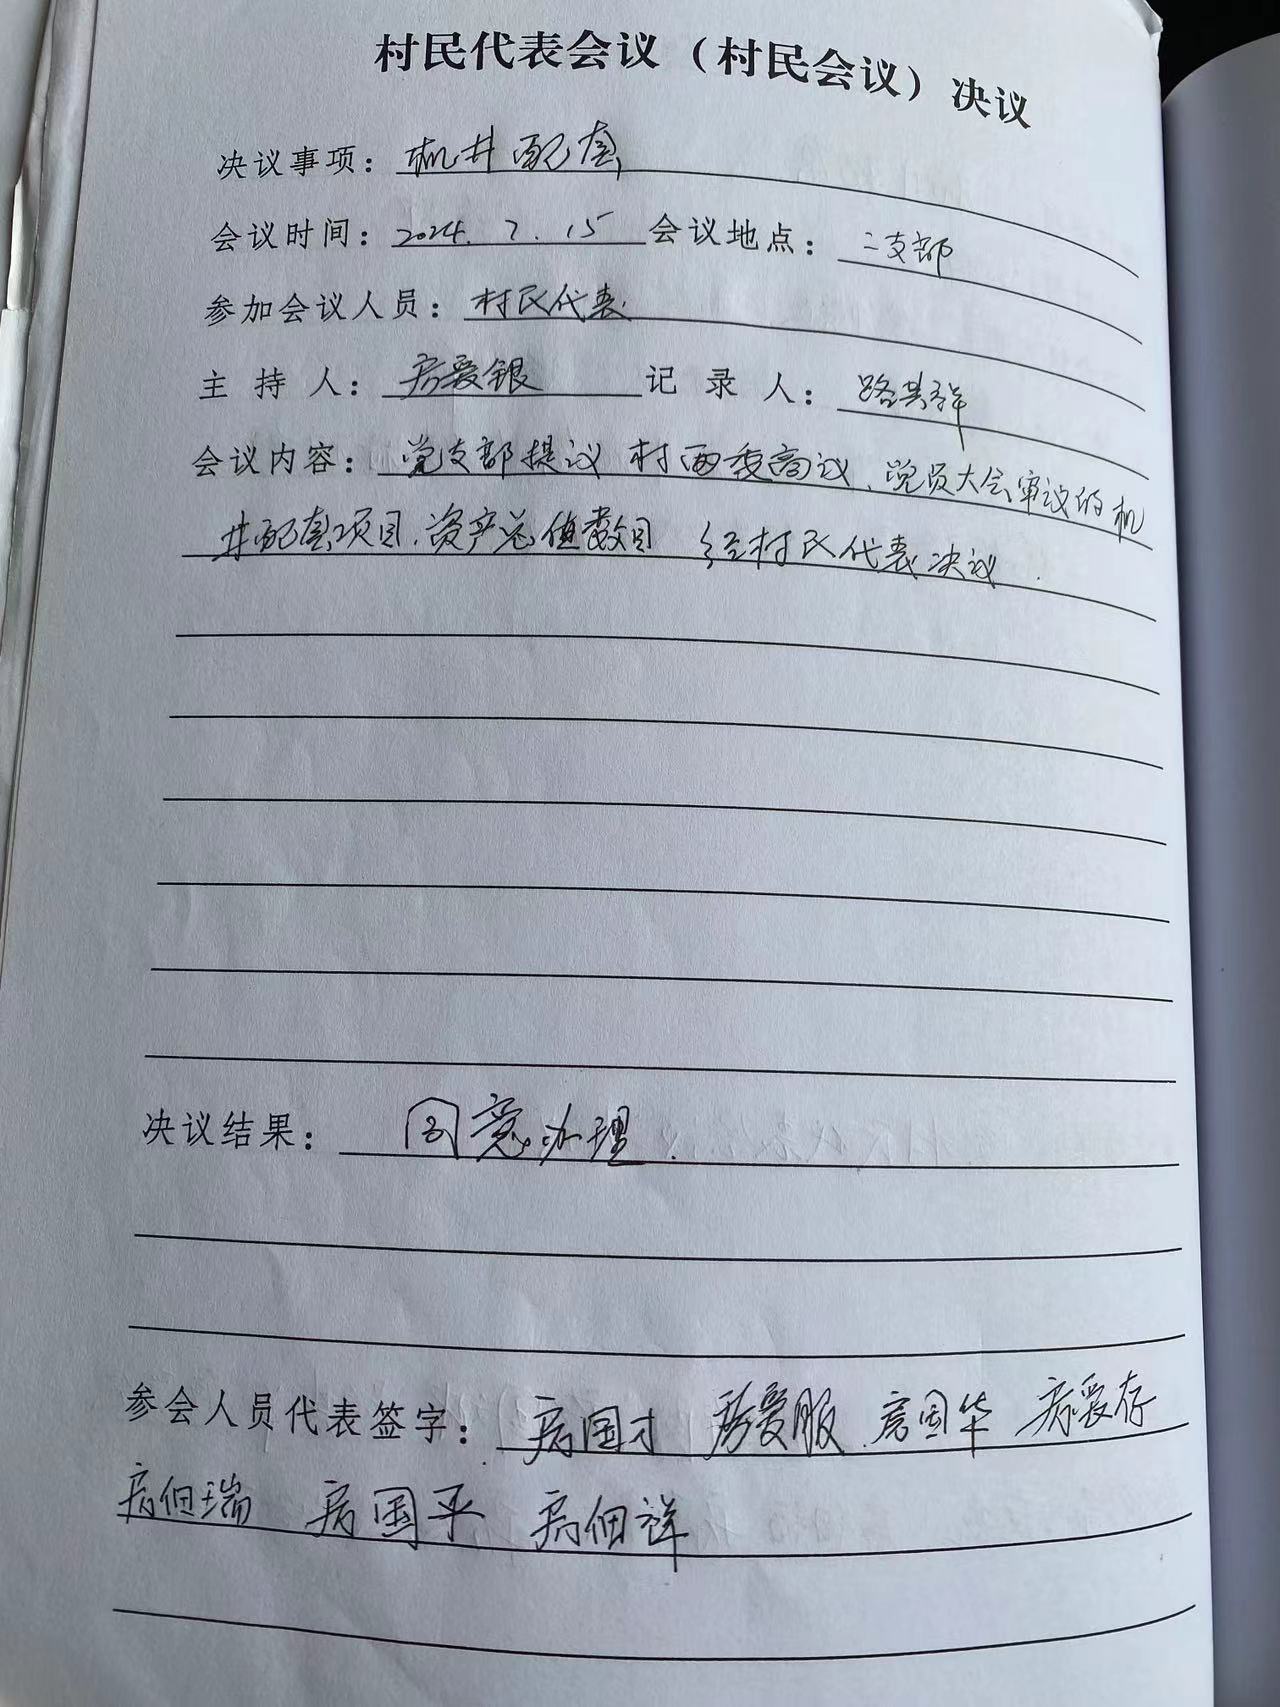 村民代表会议（村民会议）决议
决议事项：机井配套
会议时间：2024.7.15 会议地点：二支部
参加会议人员：村民代表
主持人：房爱银 记录人：路共祥
会议内容：党支部提议 村两委商议、党员大会审议的机
井配套项目、资产总值数目 经村民代表决议．
决议结果：同意办理．
参会人员代表签字：房国才 房爱服 房国华 房爱存
房佃瑞 房国平 房佃祥